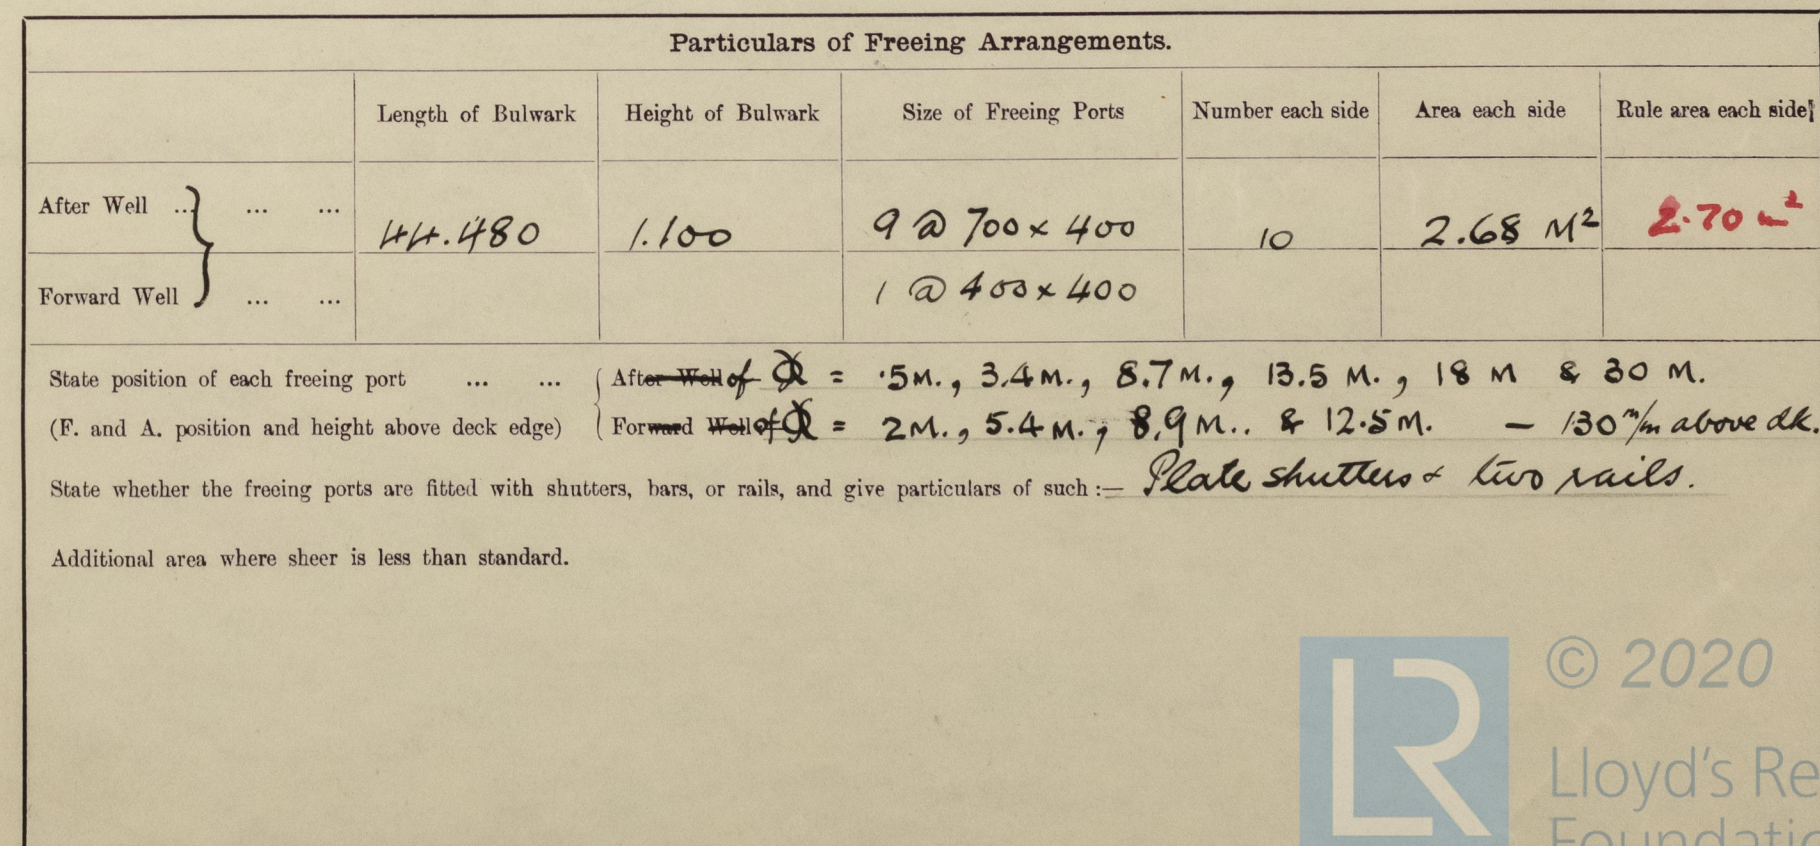 Particulars of Freeing Arrangements.
Length of Bulwark Height of Bulwark Size of Freeing Ports Number each side Area each side Rule area each side
After Well ... ... ... 44.480 1.100 9 @ 700 x 400 10 2.68 M² 2.70 m²
Forward Well ... ... 1 @ 400 x 400
State position of each freeing port ... ... After Well of = .5M., 3.4M., 8.7M., 13.5 M., 18 M & 30 M.
(F. and A. position and height above deck edge) Forward Well of = 2M., 5.4M., 8.9M.. & 12.5M. – 130 m/m above dk.
State whether the freeing ports are fitted with shutters, bars, or rails, and give particulars of such :— Plate shutters & two rails.
Additional area where sheer is less than standard.
© 2020
LR
Lloyd's Re
Foundatio